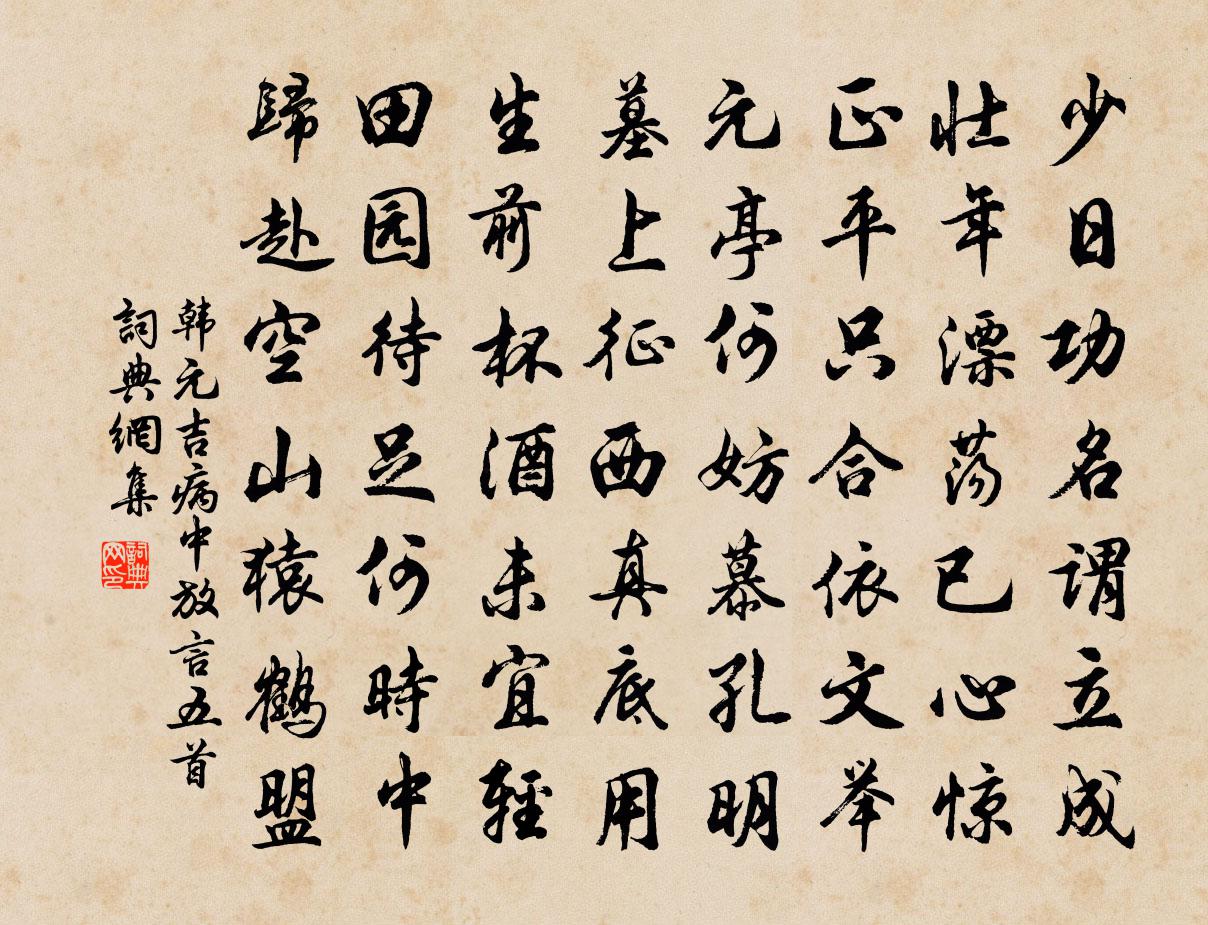 少日功名谓立成
壮年漂荡已心惊
正平只合依文举
元亭何妨慕孔明
墓上征西真底用
生前杯酒未宜轻
田园待足何时中
归赴空山猿鹤盟
韩元吉病中放言五首
词典网集
词典网印